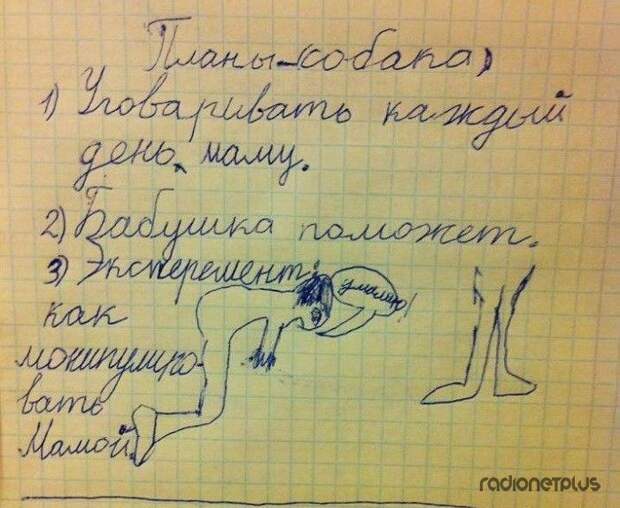 Планы (собака)
1) Уговаривать каждый
день маму.
2) Бабушка поможет.
3) Эксперемент:
как
монипулиро-
вать
Мамой.
умаляю!
radionetplus